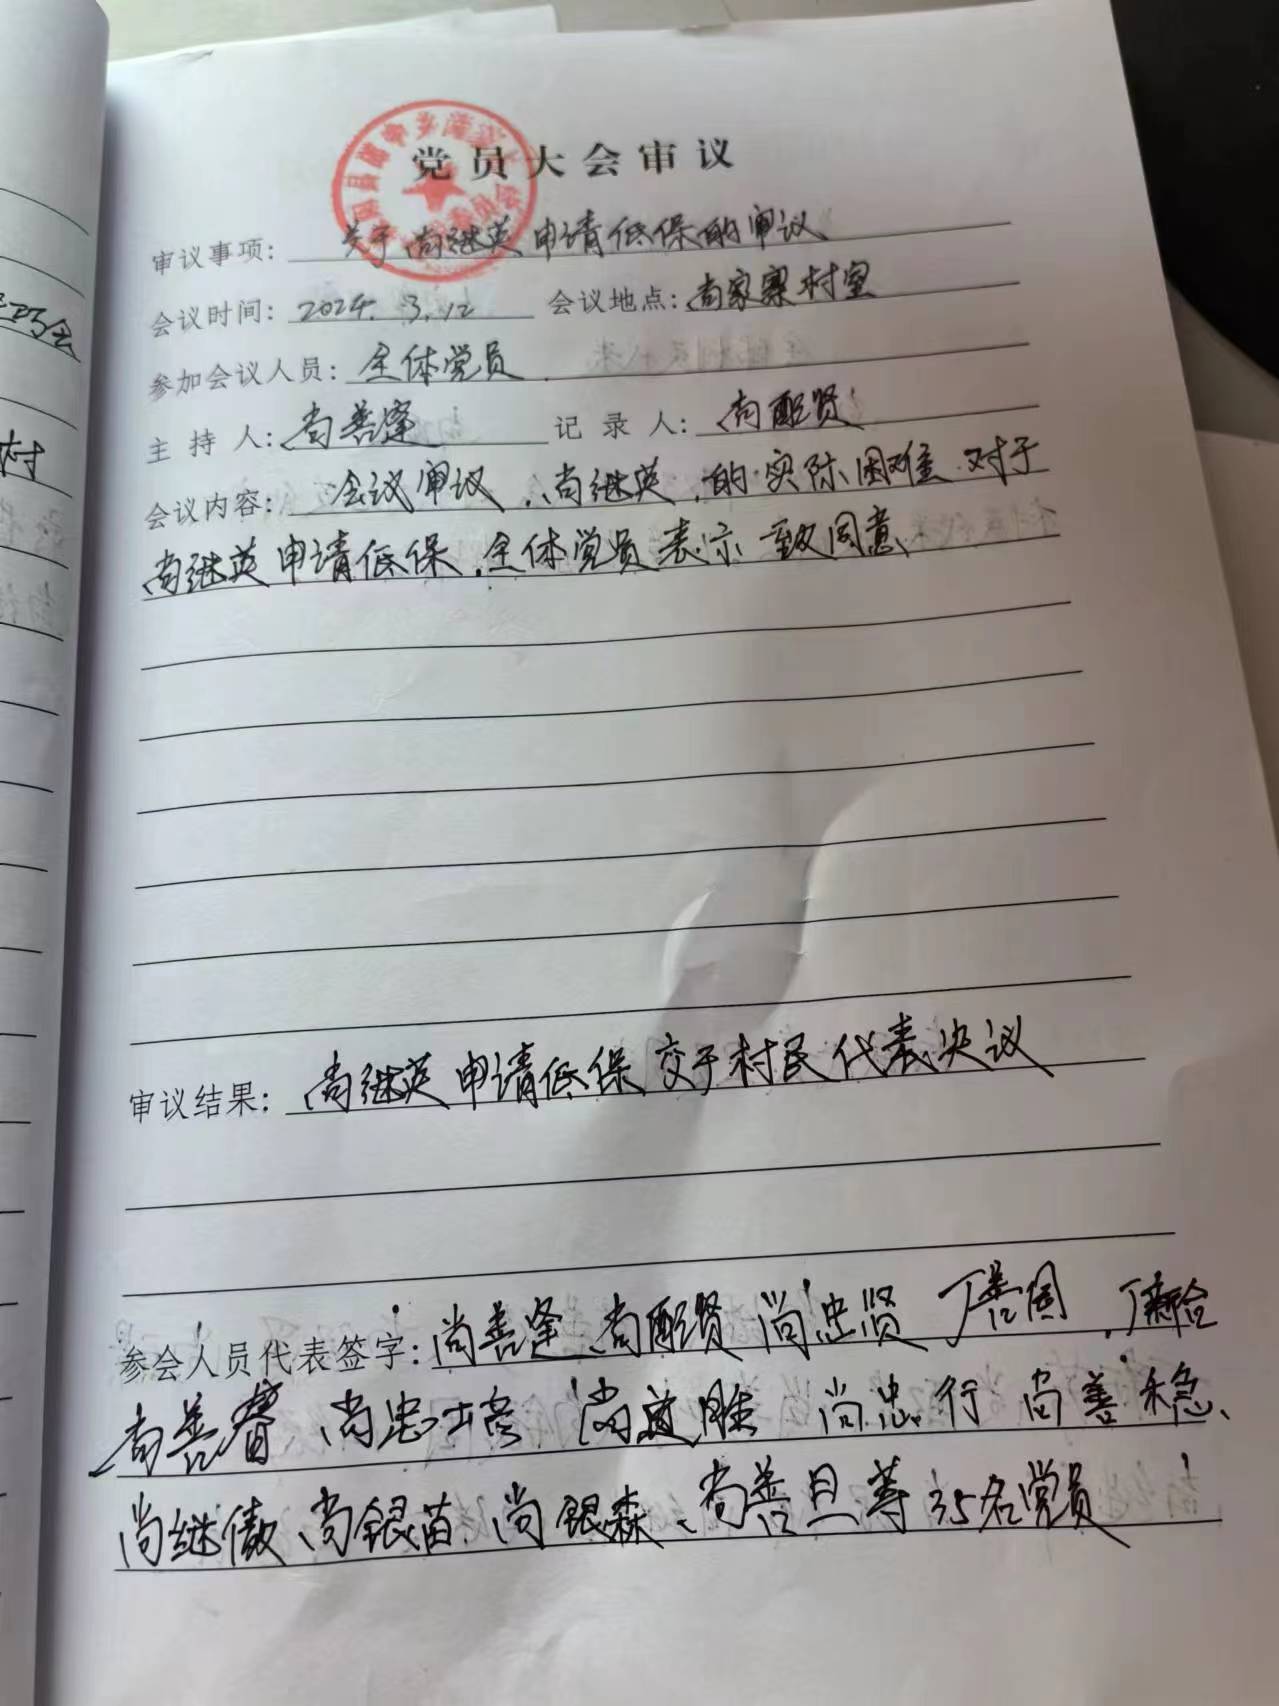 党员大会审议
审议事项: 关于尚继英申请低保的审议
会议时间: 2024. 3.12 会议地点: 尚家寨村室
参加会议人员: 全体党员
主持人: 尚善逢 记录人: 尚配贤
会议内容: 会议审议,尚继英,的实际困难 对于
尚继英申请低保,全体党员表示一致同意
审议结果: 尚继英申请低保交于村民代表决议
参会人员代表签字: 尚善逢、尚配贤 尚忠贤 丁善国
尚善睿 尚忠 尚 胜 尚忠行 尚善稳、
尚继傲、尚银苗 尚银森、尚善旦等35名党员
村